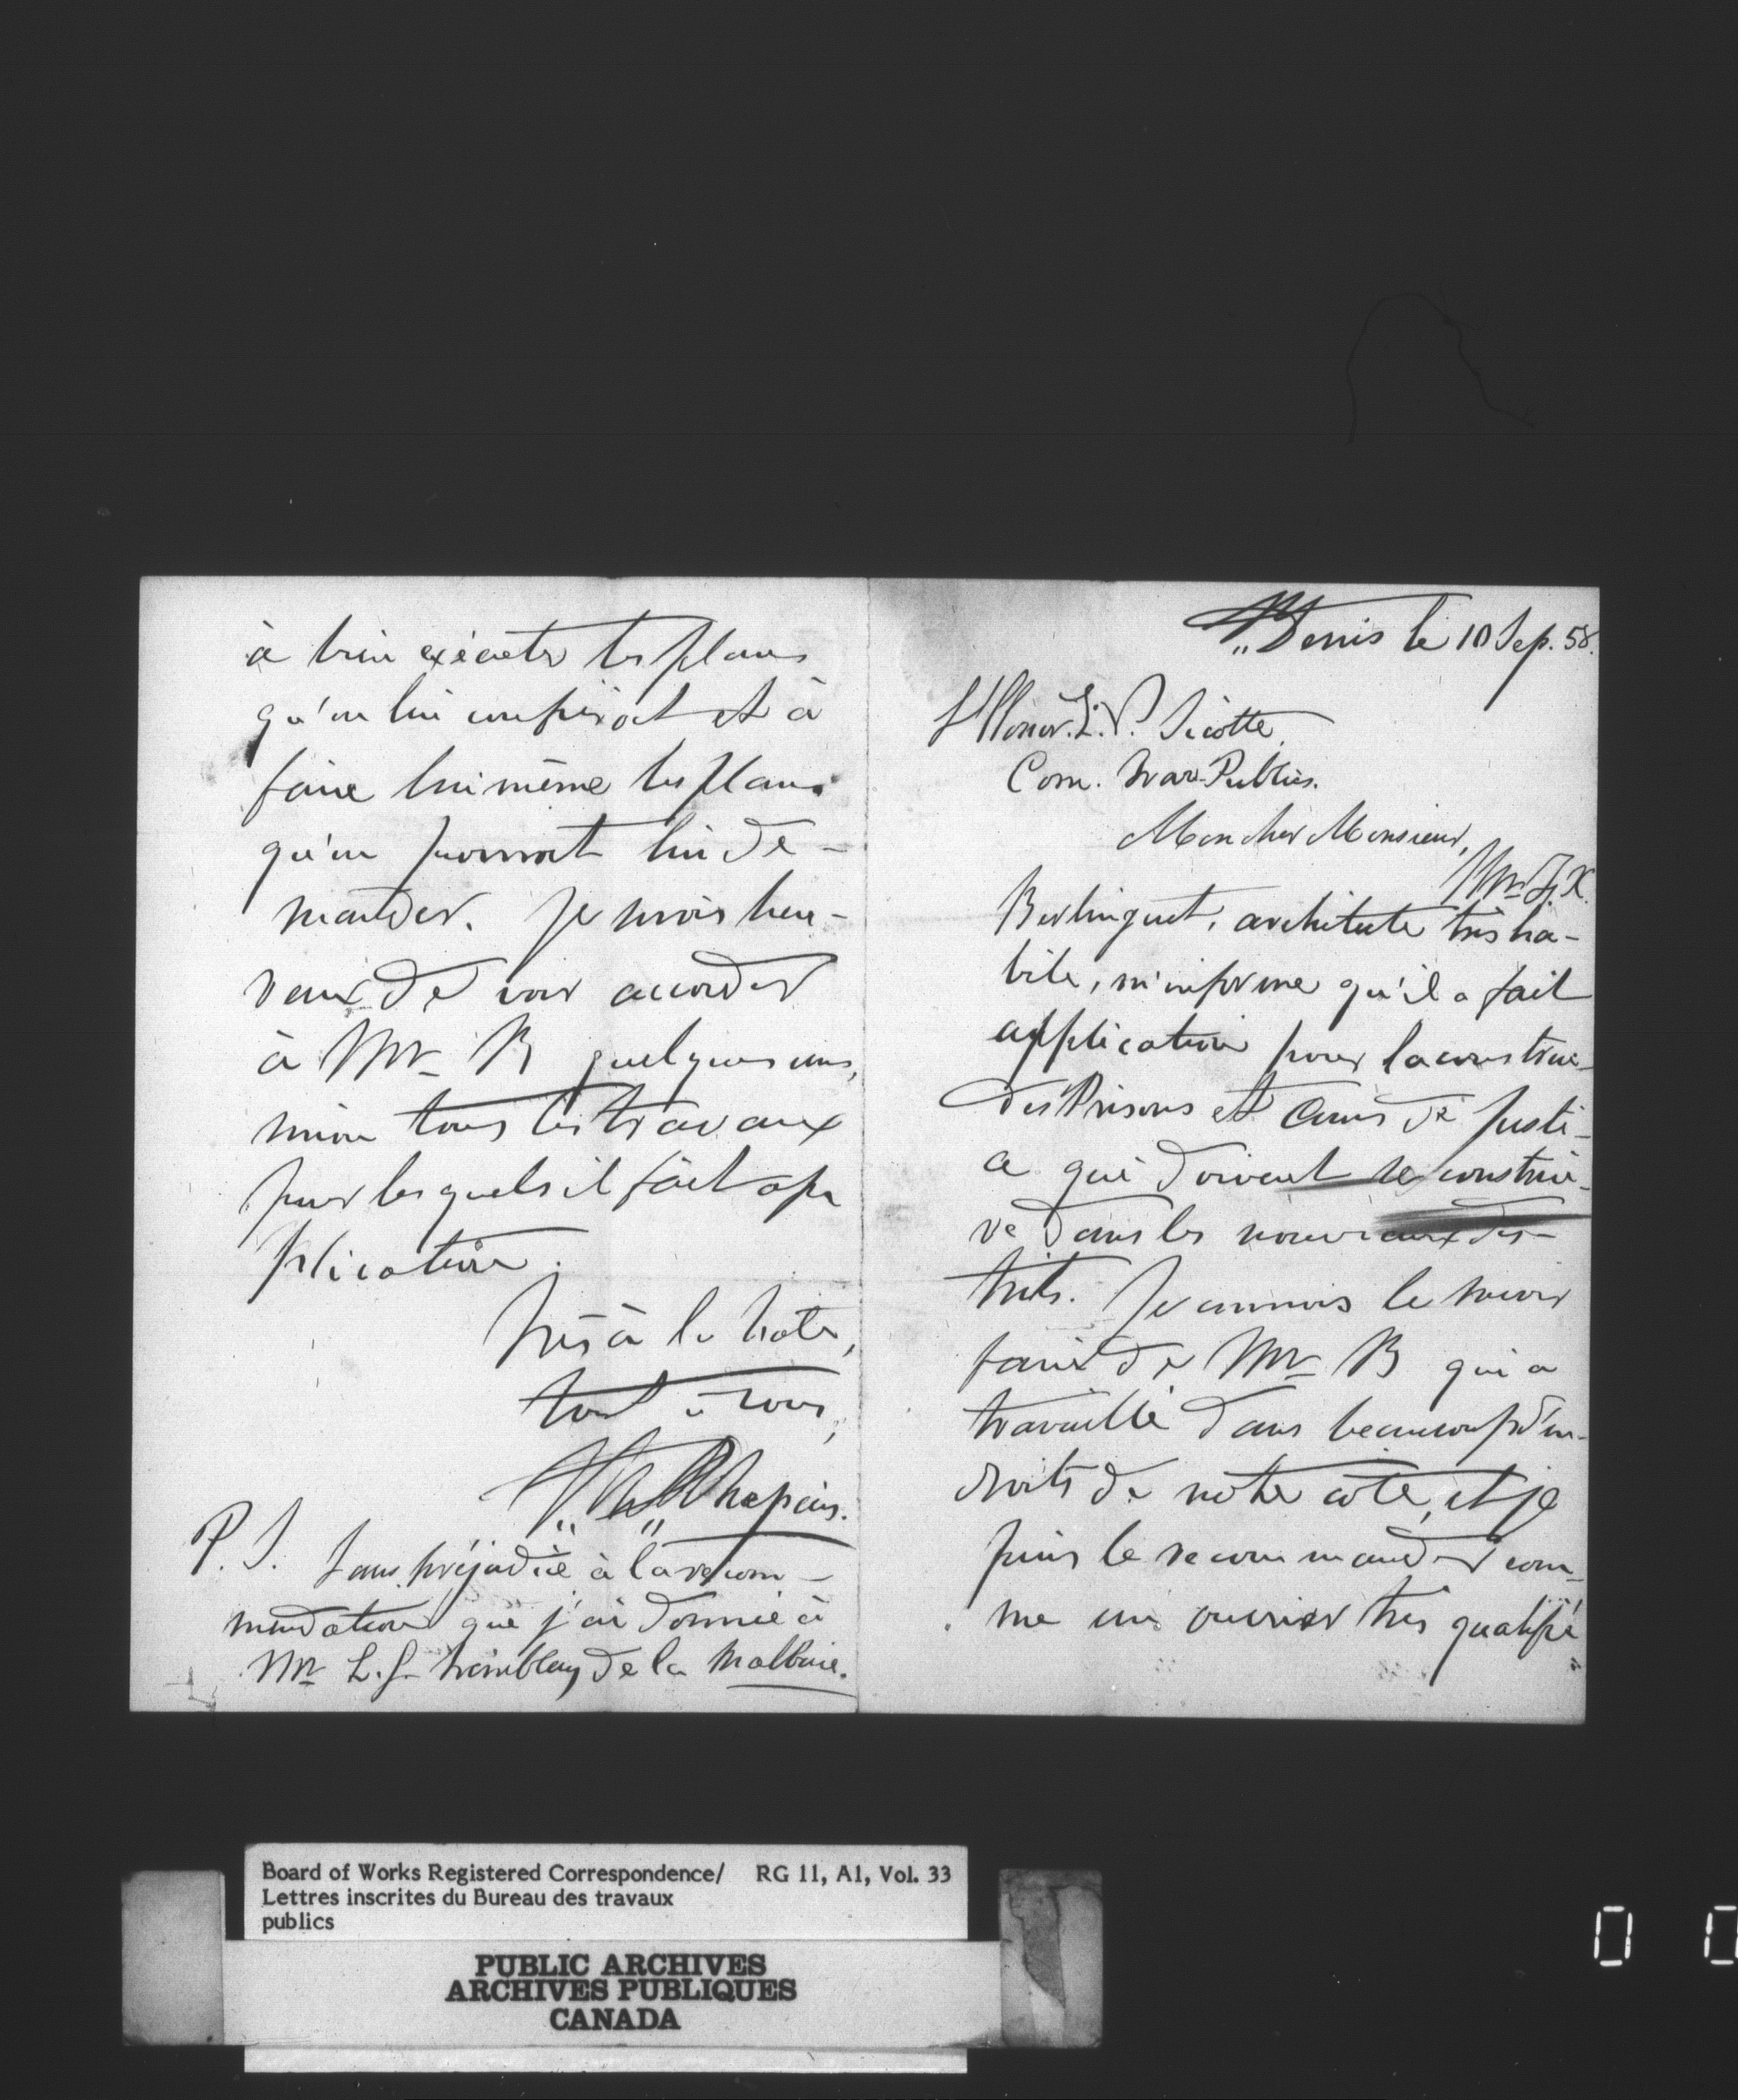 St Denis le 10 Sep. 58.
L'Honor. L. V. Sicotte,
Com. Trav. Publics.
Mon cher Monsieur,
Mr F. X.
Berlinguet, architecte très ha-
bile, m'informe qu'il a fait
application pour la construc-
des Prisons et Cours de Justi-
ce qui doivent se construi-
re dans les nouveaux dis-
tricts. Je connois le savoir
faire de Mr B qui a
travaillé dans beaucoup d'en-
droits de notre côté, et je
puis le recommander com-
me un ouvrier très qualifié
à bien exécuter les plans
qu'on lui confierait et à
faire lui même les plans
qu'on pourrait lui de-
mander. Je serois heu-
reux de voir accorder
à Mr B quelques uns,
sinon tous les travaux
pour lesquels il fait ap
plication.
Très à la hate,
tout à vous,
J. C. Chapais.
P. S. Sans préjudice à la recom-
mendation que j'ai donnée à
Mr L. G. Tremblay de la Malbaie.
Board of Works Registered Correspondence/ RG 11, A1, Vol. 33
Lettres inscrites du Bureau des travaux
publics
PUBLIC ARCHIVES
ARCHIVES PUBLIQUES
CANADA
0 0